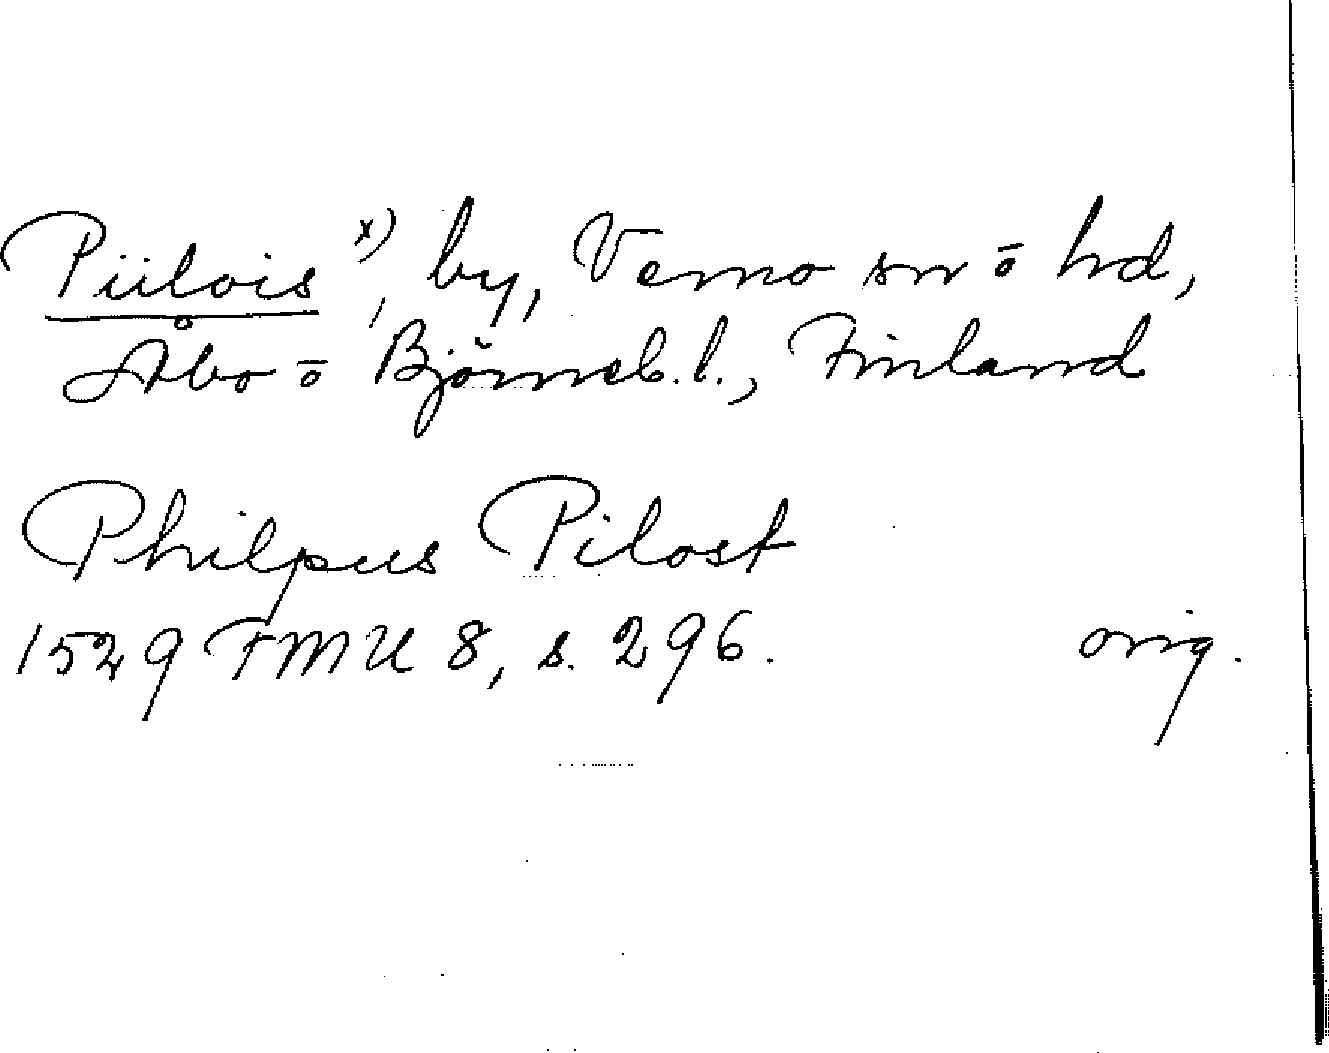 Piilois x), by, Vemo sn ō hd,
Åbo ō Björneb. l., Finland
Philpus Pilost
1529 FMU 8, s. 296. orig.